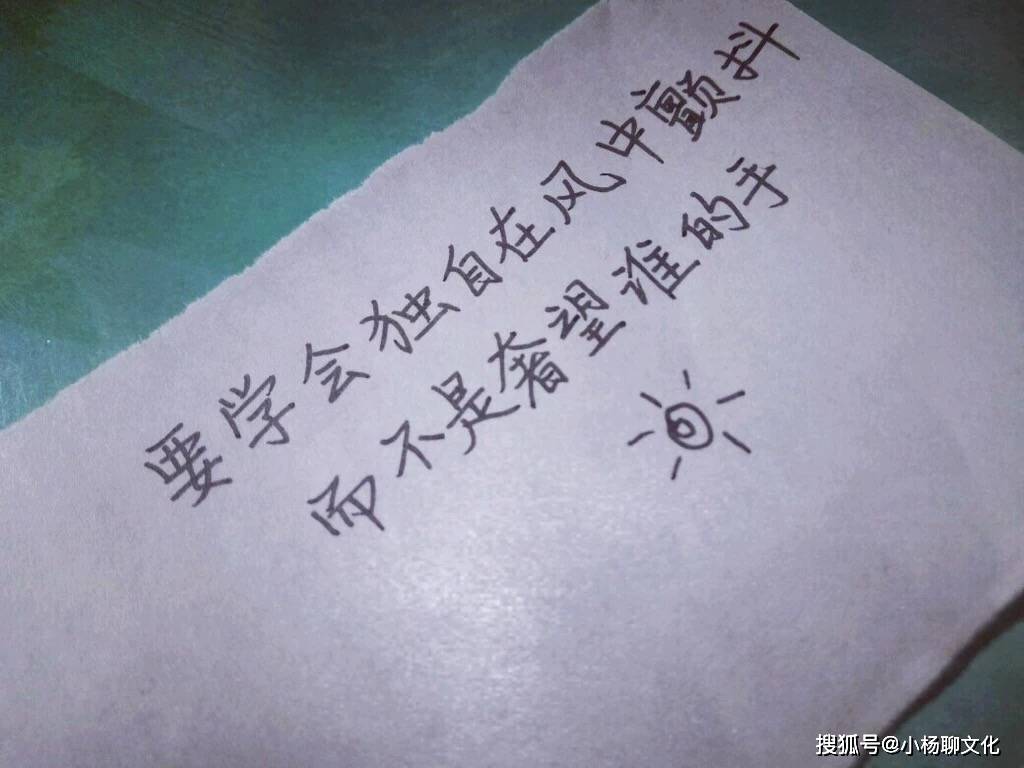 要学会独自在风中颤抖
而不是奢望谁的手
搜狐号@小杨聊文化